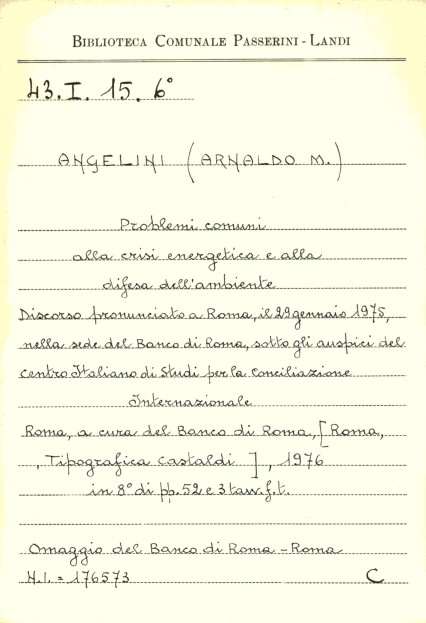 BIBLIOTECA COMUNALE PASSERINI - LANDI
43.I. 15. 6°
ANGELINI (ARNALDO M.)
Problemi comuni
alla crisi energetica e alla
difesa dell'ambiente
Discorso pronunciato a Roma, il 29 gennaio 1975,
nella sede del Banco di Roma, sotto gli auspici del
centro Italiano di Studi per la Conciliazione
Internazionale
Roma, a cura del Banco di Roma, [Roma,
, Tipografica Castaldi ], 1976
in 8° di pp. 52 e 3 tavv. f. t.
Omaggio del Banco di Roma - Roma
N.I. = 176573 C